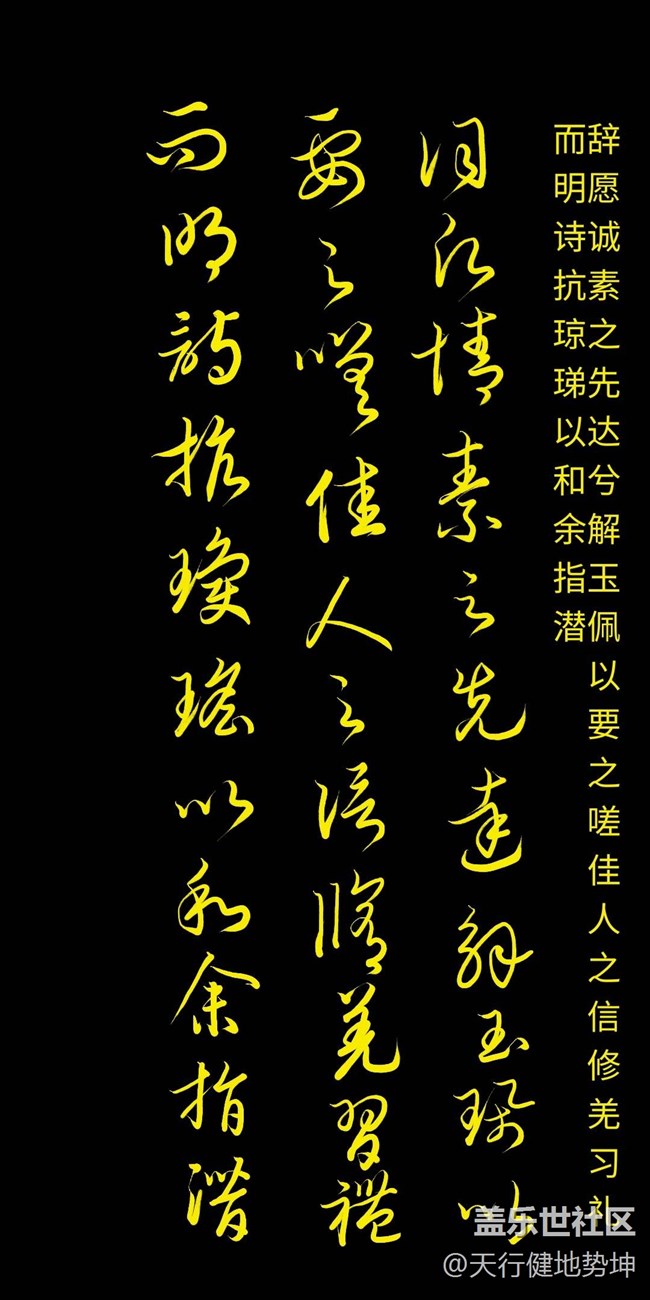 辞愿诚素之先达兮解玉佩以要之嗟佳人之信修羌习礼
而明诗抗琼珶以和余指潜
詞情素之先達解玉珮以
要之嗟佳人之信脩羌習禮
而明詩抗瓊瑤以和余指潛
盖乐世社区
@天行健地势坤